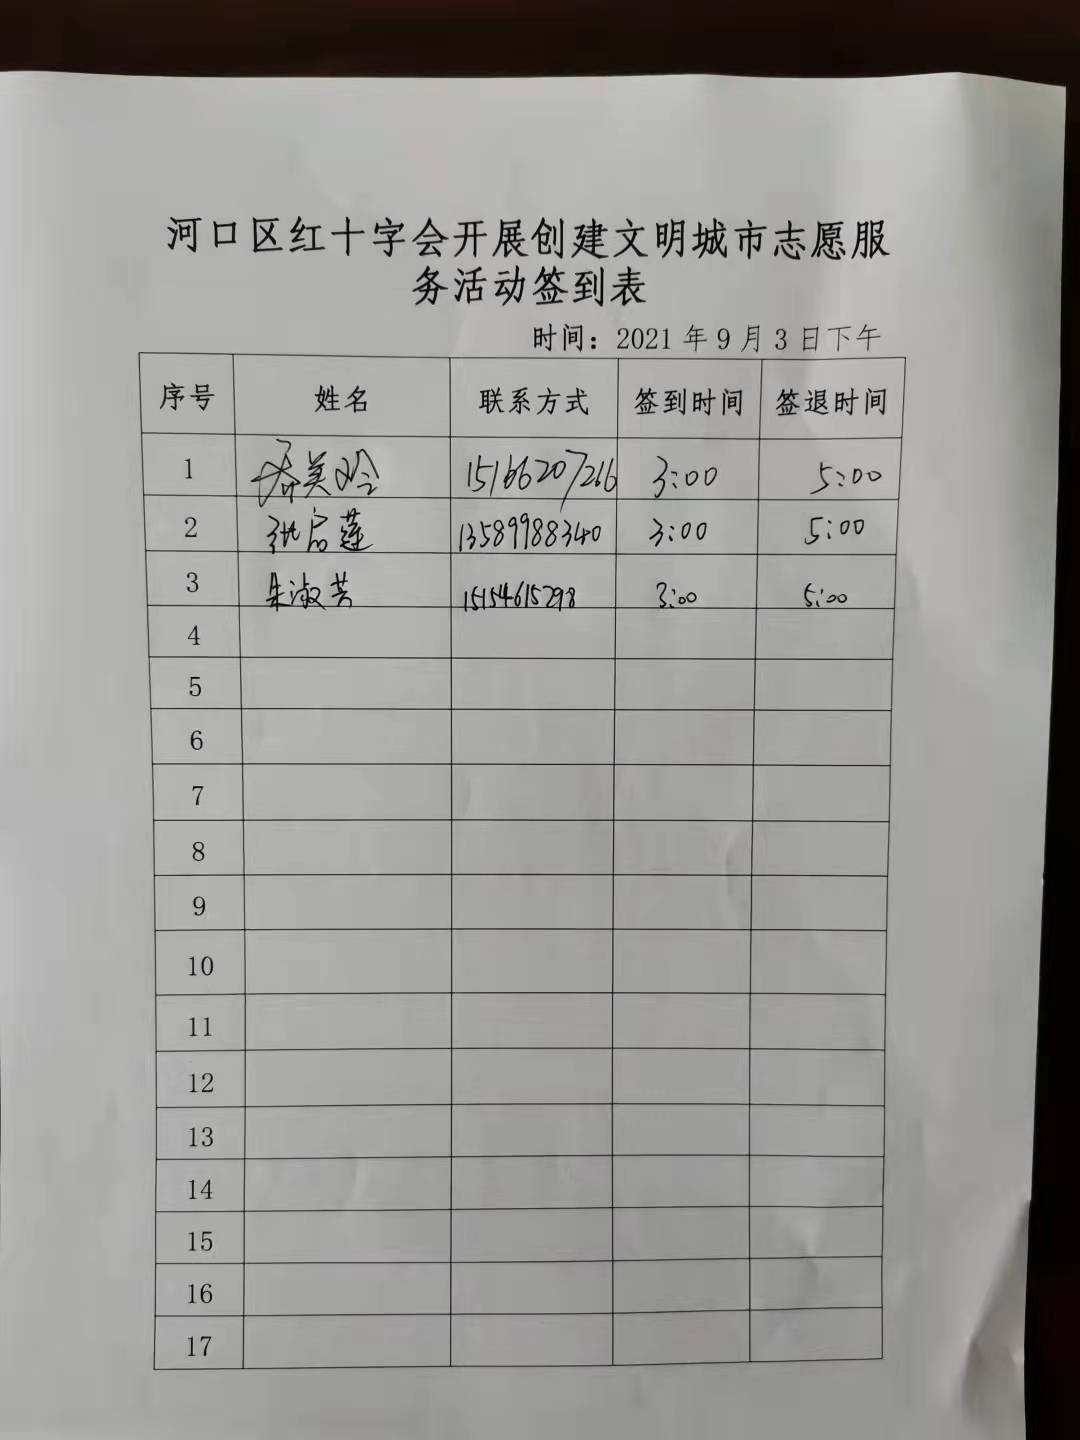 河口区红十字会开展创建文明城市志愿服
务活动签到表
时间：2021年9月3日下午
序号 姓名 联系方式 签到时间 签退时间
1 乔美玲 15166207266 3:00 5:00
2 张启莲 13589988340 3:00 5:00
3 朱淑芸 15154615298 3:00 5:00
4
5
6
7
8
9
10
11
12
13
14
15
16
17